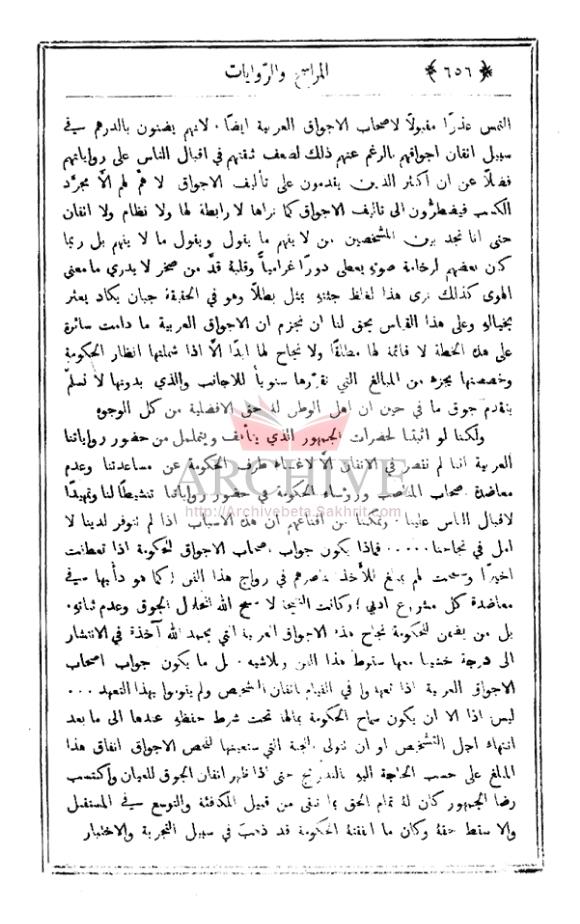 ﴿ ٦٥٦ ﴾
المراسح والروايات
التمس عذرًا مقبولًا لاصحاب الاجواق العربية ايضًا ٠ لانهم يضنون بالدرهم في
سبيل اتقان اجواقهم بالرغم عنهم ذلك لضعف ثقتهم في اقبال الناس على رواياتهم
فضلًا عن ان اكثر الذين يقدمون على تأليف الاجواق لا همّ لهم الّا مجرّد
الكسب فيضطرّون الى تأليف الاجواق كما نراها لا رابطة لها ولا نظام ولا اتقان
حتى انا نجد بين المشخصين من لا يفهم ما يقول ويقول ما لا يفهم بل ربما
كان بعضهم لرخامة صوتهِ يعطى دورًا غراميًّا وقلبهُ قدّ من صخر لا يدري ما معنى
الهوى كذلك نرى هذا لغلظ جثتهِ يمثل بطلًا وهو في الحقيقة جبان يكاد يعثر
بخيالهِ وعلى هذا القياس يحق لنا ان نجزم ان الاجواق العربية ما دامت سائرة
على هذه الخطة لا قائمة لها مطلقًا ولا نجاح لها ابدًا الّا اذا شملتها انظار الحكومة
وخصصتها بجزء من المبالغ التي تقرّرها سنويًّا للاجانب والذي بدونها لا نسلّم
بتقدم جوق ما في حين ان اهل الوطن لهُ حق الافضلية من كل الوجوه
ولكنا لو اثبتنا لحضرات الجمهور الذي يتأفف ويتململ من حضور رواياتنا
العربية اننا لم نقصر في الاتقان الّا لاغضاء طرف الحكومة عن مساعدتنا وعدم
معاضدة اصحاب المناصب ورؤساء الحكومة في حضور رواياتنا تنشيطًا لنا وتمهيدًا
لاقبال الناس علينا ٠ وتمكنا من اقناعهم ان هذه الاسباب اذا لم تتوفر لدينا لا
امل في نجاحنا ٠٠٠٠٠ فماذا يكون جواب اصحاب الاجواق للحكومة اذا تعطفت
اخيرًا وسمحت لهم بمبلغ للأخذ بناصرهم في رواج هذا الفن (كما هو دأبها في
معاضدة كل مشروع ادبي) وكانت النتيجة لا سمح الله انحلال الجوق وعدم ثباتهِ ٠
بل من يضمن للحكومة نجاح هذه الاجواق العربية التي بحمد الله آخذة في الانتشار
الى درجة خشينا معها سقوط هذا الفن وتلاشيه ٠ بل ما يكون جواب اصحاب
الاجواق العربية اذا تعهدوا في القيام باتقان التشخيص ولم يقوموا بهذا التعهد ٠٠٠
ليس اذا الا ان يكون سماح الحكومة بمالها تحت شرط حفظهِ عندها الى ما بعد
انتهاء اجل التشخيص او ان تتولى اللجنة التي ستعينها لفحص الاجواق انفاق هذا
المبلغ على حسب الحاجة اليهِ بالتدريج حتى اذا ظهر اتقان الجوق للعيان واكتسب
رضا الجمهور كان لهُ تمام الحق بما تبقى من قبيل المكافئة والتوسع في المستقبل
والا سقط حقهُ وكان ما انفقتهُ الحكومة قد ذهب في سبيل التجربة والاختبار
ARCHIVE
http://Archivebeta.Sakhrit.com